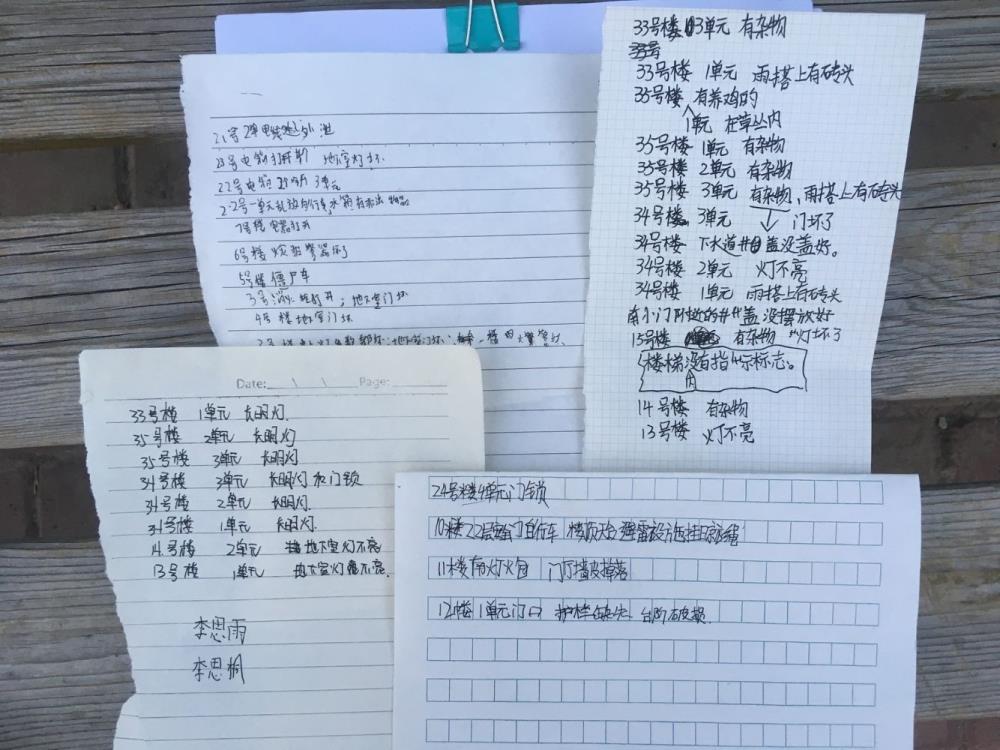 21号2单电线外泄
23号电箱打开 地下室灯坏
22号电箱 3单元
2-2号一单元乱放自行车,水箱有杂物
7号楼电器打开
6号楼火警警器坏了
5号楼僵尸车
3号 打开;地下室门坏
4号楼地下室门坏
33号楼 03单元 有杂物
33号
33号楼 1单元 雨搭上有砖头
35号楼 有养鸡的
1单元 在草丛内
35号楼 1单元 有杂物
35号楼 2单元 有杂物
35号楼 3单元 有杂物,雨搭上有砖头
34号楼 3单元 门坏了
34号楼 下水道井盖没盖好。
34号楼 2单元 灯不亮
34号楼 1单元 雨搭上有砖头
南小门 的井盖没摆放好
15号楼 有杂物 灯坏了
楼梯内没有指示标志。
14号楼 有杂物
13号楼 灯不亮
Date: \ \ Page:
33号楼 1单元 长明灯
35号楼 2单元 长明灯
35号楼 3单元 长明灯
34号楼 3单元 长明灯和门锁
34号楼 2单元 长明灯
34号楼 1单元 长明灯
14号楼 2单元 地下室灯不亮
13号楼 1单元 地下室灯不亮
李思雨
李思桐
24号楼4单元门锁
10楼22层 门自行车 楼顶处避雷设施挂晾绳
11楼 门厅墙皮掉落
12楼1单元门口 护栏缺失 台阶破损